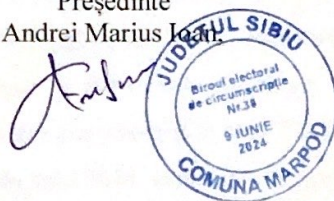 Președinte
Andrei Marius Ioan.
JUDEȚUL SIBIU
Biroul electoral
de circumscripție
Nr.38
9 IUNIE
2024
COMUNA MARPOD